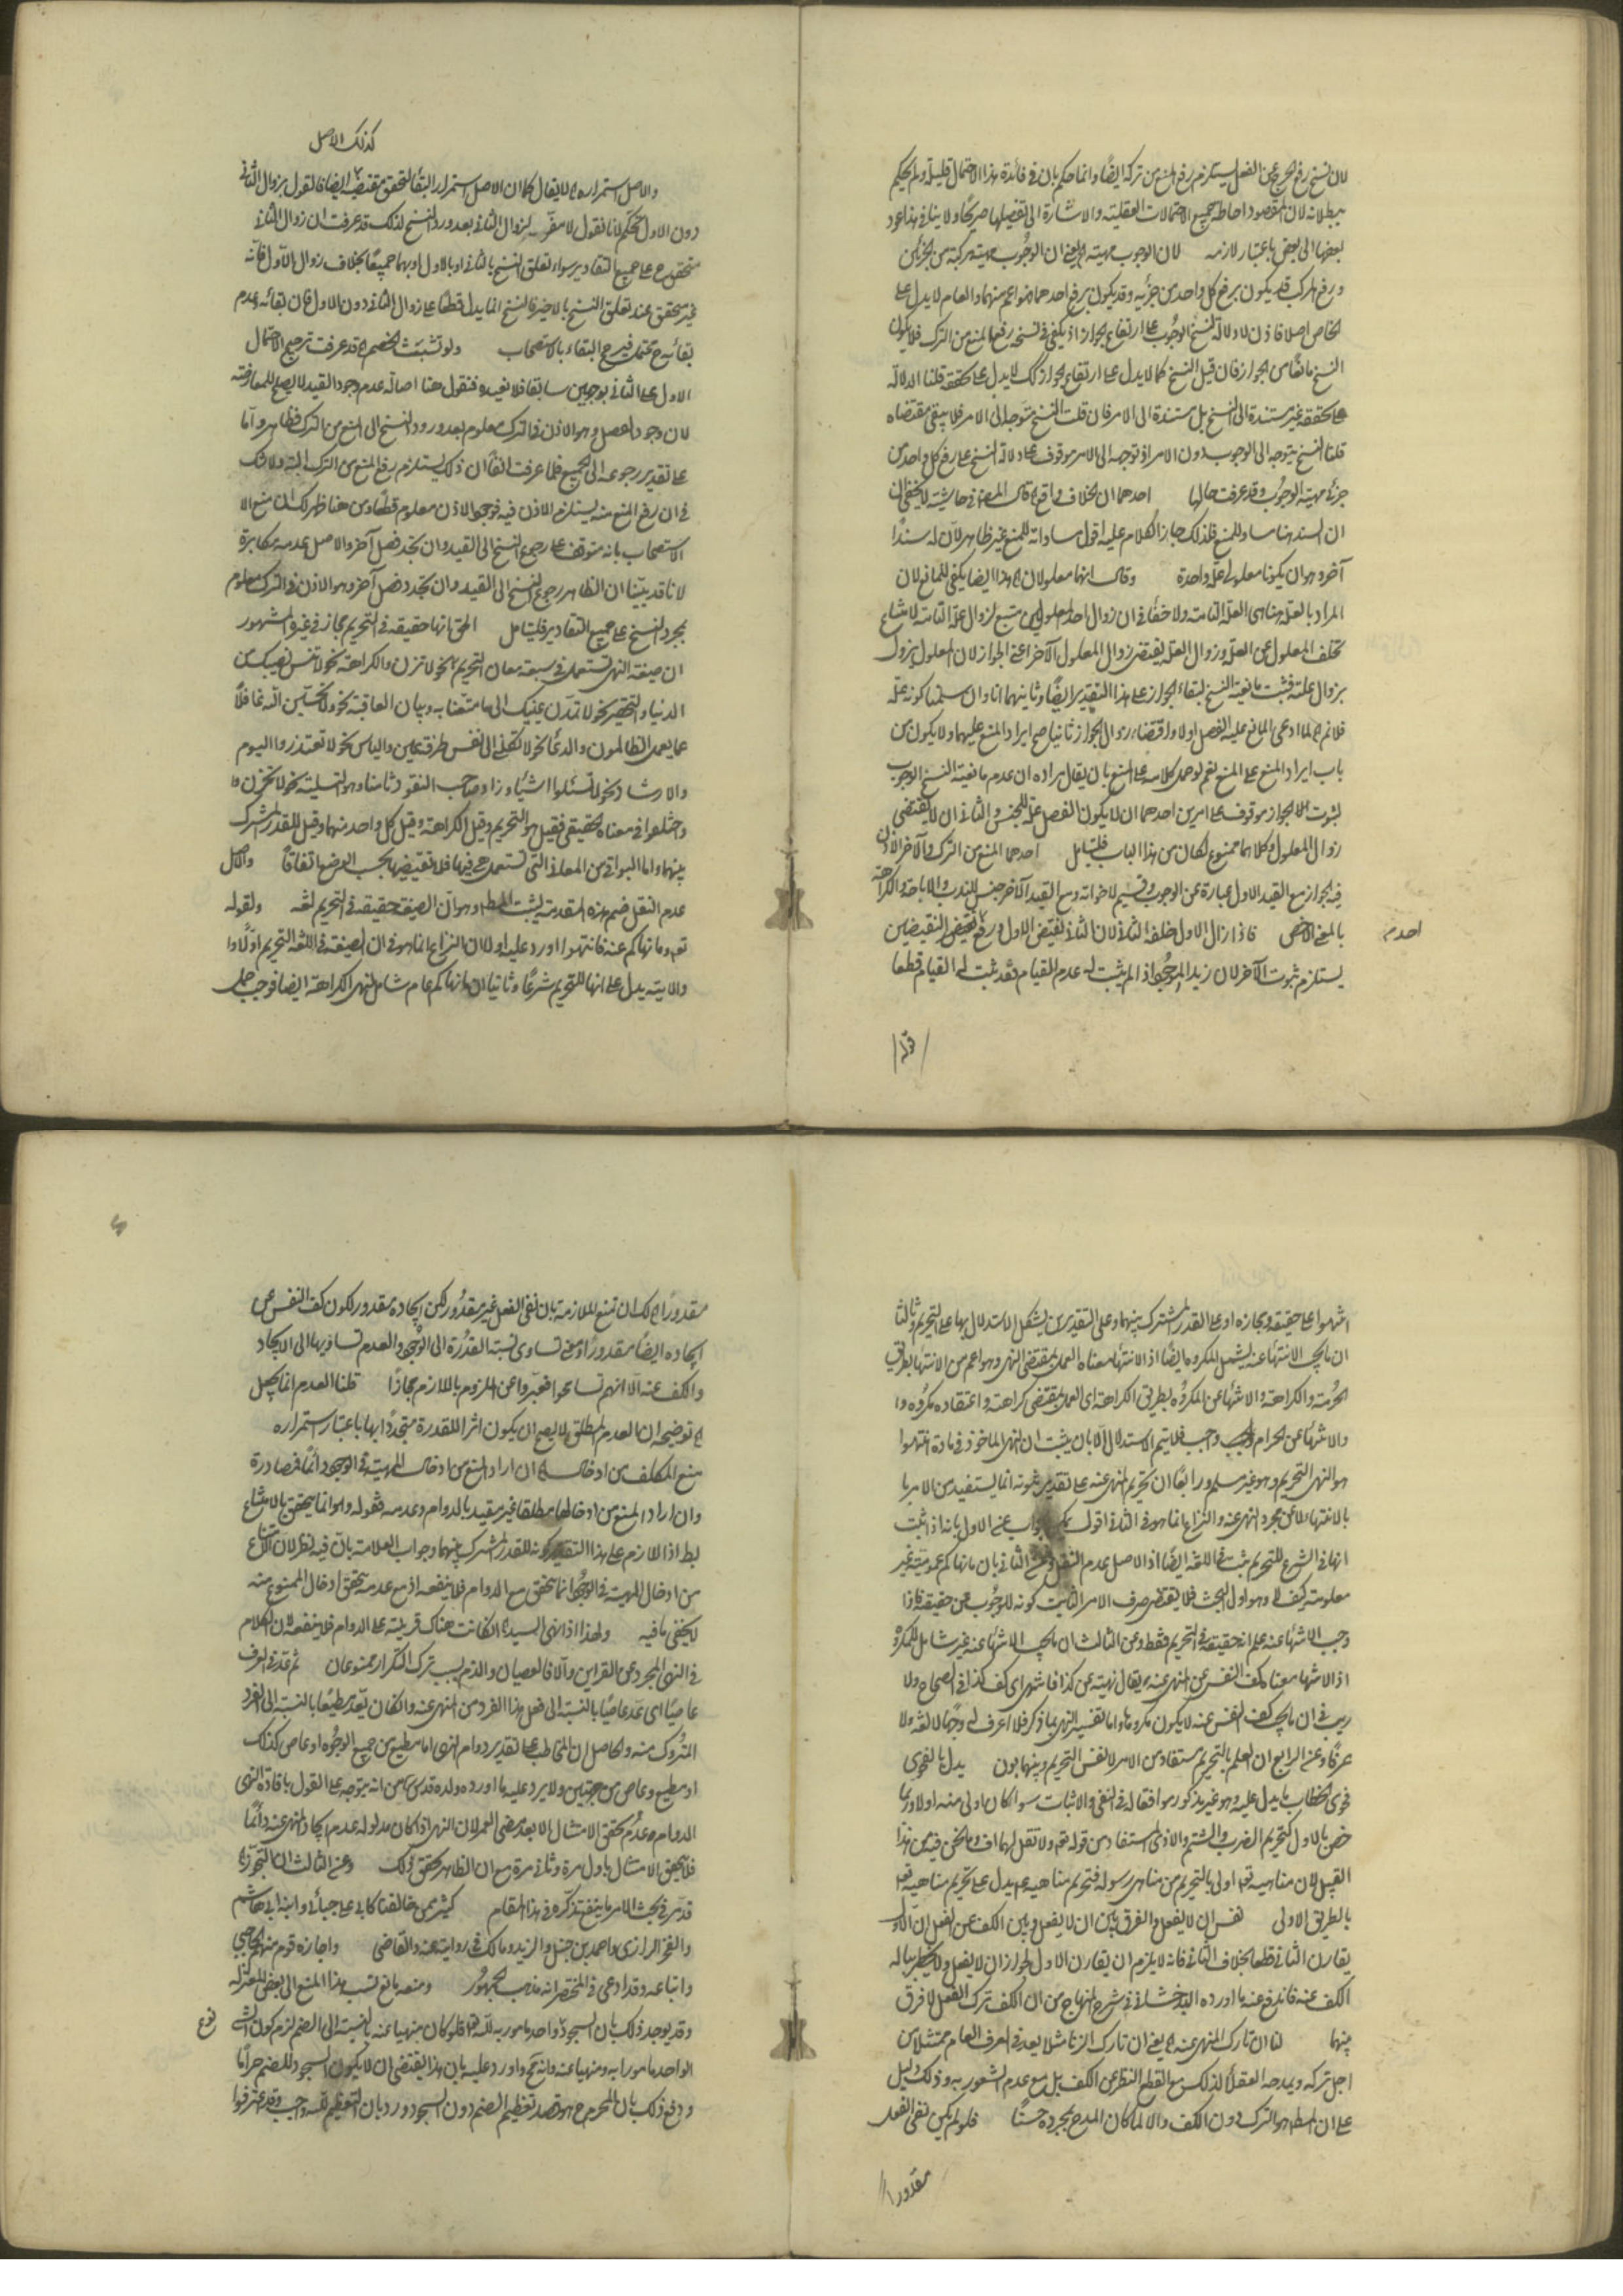 لان نسخ رفع الحرج عن الفعل يستلزم رفع المنع من تركه ايضا وانما حكم بان في فائدة هذا الاحتمال قليلة ولم يحكم
ببطلانه لان المقصود احاطة جميع الاحتمالات العقلية والاشارة الى تفصيلها صريحا ولا ينافي هذا عود
بعضها الى بعض باعتبار لازمه لان الوجوب مهية الخ يعني ان الوجوب مهية مركبة من جزئين
ورفع المركب قد يكون برفع كل واحد من جزئيه وقد يكون برفع احدهما فهو اعم منهما والعام لا يدل على
الخاص اصلا فاذن لا دلالة لنسخ الوجوب على ارتفاع الجواز اذ يكفي في نسخه رفع المنع من الترك فلا يكون
النسخ مانعا من الجواز فان قيل النسخ كما لا يدل على ارتفاع الجواز كذلك لا يدل على تحققه قلنا الدلالة
على تحققه غير مستندة الى النسخ بل مستندة الى الامر فان قلت النسخ متوجه الى الامر فلا يبقى مقتضاه
قلنا النسخ يتوجه الى الوجوب دون الامر اذ توجهه الى الامر موقوف على دلالة النسخ على رفع كل واحد من
جزئي مهية الوجوب وقد عرفت حالها احدهما ان الخلاف واقع الخ قال المصنف في حاشيته لا يخفى ان
ان السند هنا مساو للمنع فلذلك جاز الكلام عليه اقول مساواته للمنع غير ظاهر لان له سندا
آخر وهو ان يكونا معلولي علة واحدة وقال انهما معلولان الخ هذا ايضا يكفي للمانع لان
المراد بالعلة هنا هي العلة التامة ولا خفاء في ان زوال احد المعلولين يتبع لزوال علة التامة لامتناع
تخلف المعلول عن العلة وزوال العلة يقتضي زوال المعلول الآخر اعني الجواز لان المعلول يزول
بزوال علته فثبت مانعية النسخ لبقاء الجواز على هذا التقدير ايضا وثانيهما انا وان سلمنا كونه علة
فلا نم الخ لما ادعى المانع علية الفصل اولا واقتضاء زوال الجواز ثانيا صح ايراد المنع عليهما ولا يكون من
باب ايراد المنع على المنع نعم لو حمل كلامه على المنع بان يقال مراده ان عدم مانعية النسخ الوجوب
لثبوت الجواز موقوف على امرين احدهما ان لا يكون الفصل علة للجنس والثاني ان لا يقتضي
زوال المعلول وكلاهما ممنوع لكان من هذا الباب فليتامل احدهما المنع من الترك والآخر الاذن
فيه الجواز مع القيد الاول عبارة عن الوجوب وقسيم لاخواته ومع القيد الآخر جنس للندب والاباحة والكراهة
بالمعنى الاخص فاذا زال الاول خلفه الثاني لان الثاني نقيض الاول ورفع نقيض النقيضين
احدم
يستلزم ثبوت الآخر لان زيد الموجود اذا لم يثبت له عدم القيام فقد ثبت له القيام قطعا
قوله
كذلك الاصل
والاصل استمراره الخ لا يقال كما ان الاصل استمرار البقاء لتحقق مقتضيه ايضا فالقول بزوال الثاني
دون الاول تحكم لانا نقول لا مفر من زوال الثاني بعد ورود النسخ لذلك قد عرفت ان زوال الثاني
متحقق ح على جميع التقادير سواء تعلق النسخ بالثاني او بالاول او بهما جميعا بخلاف زوال الاول فانه
غير متحقق عند تعلق النسخ بالاخير فالنسخ انما يدل قطعا على زوال الثاني دون الاول فان بقائه وعدم
بقائه ح محتمل فيرجح البقاء بالاستصحاب ولو تشبث الخصم الخ قد عرفت ترجيح الاحتمال
الاول على الثاني بوجهين سابقا فلا نعيده فنقول هنا اصالة عدم وجود القيد لا يصلح للمعارضة
لان وجود الفصل وهو الاذن في الترك معلوم بعد ورود النسخ الى المنع من الترك فظاهر واما
على تقدير رجوعه الى الجميع فلما عرفت انفا ان ذلك يستلزم رفع المنع من الترك البتة ولا شك
في ان رفع المنع منه يستلزم الاذن فيه فوجود الاذن معلوم قطعا ومن هنا ظهر لك ان منع الا
الاستصحاب بانه متوقف على رجوع النسخ الى القيد وان تجدد فصل آخر والاصل عدمه مكابرة
لانا قد بينا ان الظاهر رجوع النسخ الى القيد وان تجدد فصل آخر وهو الاذن في الترك معلوم
بمجرد النسخ على جميع التقادير فليتامل الحق انها حقيقة في التحريم مجاز في غيره المشهور
ان صيغة النهي تستعمل في سبعة معان التحريم نحو لا تزن والكراهة نحو لا تنس نصيبك من
الدنيا والتحقير نحو لا تمدن عينيك الى ما متعنا به وبيان العاقبة نحو ولا تحسبن الله غافلا
عما يعمل الظالمون والدعاء نحو لا تكلني الى نفسي طرفة عين والياس نحو لا تعتذروا اليوم
والارشاد نحو لا تسئلوا اشياء وزاد صاحب النقود ثامنا وهو التسلية نحو لا تحزن
واختلفوا في معناه الحقيقي فقيل هو التحريم وقيل الكراهة وقيل كل واحد منهما وقيل للقدر المشترك
بينهما واما البواقي من المعاني التي تستعمل هي فيها فلا تقتضيها بحسب الوضع اتفاقا والاصل
عدم النقل ضم هذه المقدمة ليثبت المط وهو ان الصيغة حقيقة في التحريم لغة ولقوله
تعه وما نهاكم عنه فانتهوا اورد عليه اولا ان النزاع انما هو في ان الصيغة في اللغة للتحريم او لا
والآية يدل على انها للتحريم شرعا وثانيا ان ما نهاكم عام شامل لنهي الكراهة ايضا فوجب حمل
انتهوا على حقيقة ومجازه او على القدر المشترك بينهما وعلى التقديرين يشكل الاستدلال بها على التحريم وثالثا
ان ما يجب الانتهاء عنه يشمل المكروه ايضا اذ الانتهاء معناه العمل بمقتضى النهي وهو اعم من الانتهاء بطريق
الحرمة والكراهة والانتهاء عن المكروه بطريق الكراهة اي العمل بمقتضى كراهته واعتقاده مكروه وا
والانتهاء عن الحرام واجب فلا يتم الاستدلال الا بان يثبت ان النهي الماخوذ في مادة انتهوا
هو النهي التحريم وهو غير مسلم ورابعا ان تحريم المنهي عنه على تقدير ثبوته انما يستفيد من الامر با
بالانتهاء لا عن مجرد النهي عنه والنزاع انما هو في الثاني اقول يمكن الجواب عن الاول بانه اذا ثبت
انها في الشرع للتحريم ثبت في اللغة ايضا اذ الاصل عدم النقل وعن الثاني بان ما نهاكم عمومه غير
معلومة كيف لا وهو اول البحث فلا يقتضي صرف الامر الثابت كونه للوجوب عن حقيقته فاذا
وجب الانتهاء عنه علم انه حقيقة في التحريم فقط وعن الثالث ان ما يجب الانتهاء عنه غير شامل للمكروه
اذ الانتهاء معناه كف النفس عن المنهي عنه يقال نهيته عن كذا فانتهى اي كف كذا في الصحاح ولا
ريب في ان ما يجب كف النفس عنه لا يكون مكروها واما تفسير النهي بما ذكر فلا اعرف له وجها لا لغة ولا
عرفا وعن الرابع ان العلم بالتحريم مستفاد من الامر لا نفس التحريم وبينهما بون يدل بالفحوى
فحوى الخطاب ما يدل عليه وهو غير مذكور موافقا له في النفي والاثبات سوا كان اولى منه اولا وربما
خص بالاول كتحريم الضرب والشتم والاذى المستفاد من قوله تعه ولا تقل لهما اف وما نحن فيه من هذا
القبيل لان مناهيه تعه اولى بالتحريم من مناهي رسوله فتحريم مناهيه ع يدل على تحريم مناهيه تعه
بالطريق الاولى نفس ان لا يفعل والفرق بين ان لا يفعل وبين الكف عن الفعل ان الاول
يقارن الثاني قطعا بخلاف الثاني فانه لا يلزم ان يقارن الاول لجواز ان لا يفعل ولا يخطر بباله
الكف عنه فاندفع عنه ما اورده البدخشاني في شرح المنهاج من ان الكف ترك الفعل لا فرق
بينهما لنا ان تارك المنهي عنه الخ يعني ان تارك الزنا مثلا يعد في العرف العام ممتثلا من
اجل تركه ويمدحه العقلاء لذلك مع القطع النظر عن الكف بل مع عدم الشعور به وذلك دليل
على ان المط هو الترك دون الكف والا لما كان المدح بمجرده حسنا فلو لم يكن نفي الفعل
مقدورا
مقدورا الخ لك ان تمنع الملازمة بان نفي الفعل غير مقدور لكن ايجاده مقدور لكون كف النفس عن
ايجاده ايضا مقدورا ومعنى تساوي نسبة القدرة الى الوجود والعدم تساويها الى الايجاد
والكف عنه الا انهم تسامحوا فعبروا عن الملزوم باللازم مجازا قلنا العدم انما يجعل
الخ توضيحه ان العدم المطلق لا يصح ان يكون اثرا للقدرة متجددا بها باعتبار استمراره
منع المكلف من ادخال الخ ان اراد المنع من ادخال المهية في الوجود دائما فمصادرة
وان اراد المنع من ادخالها مطلقا غير مقيد بالدوام وعدمه فقوله وهو انما يتحقق بالامتناع
بط اذ اللازم على هذا التقدير كونه للقدر المشترك بينهما وجواب العلامة بان فيه نظر لان الامتناع
من ادخال المهية في الوجود انما يتحقق مع الدوام فلا ينفعه اذ مع عدمه يتحقق ادخال الممنوع منه
لا يخفى ما فيه ولهذا اذا نهى السيد الخ ان كانت هناك قرينة على الدوام فلا ينفعه لان الكلام
في النهي المجرد عن القراين والا فالعصيان والذم بسبب ترك التكرار ممنوعان ثم عد في العرف
عاصيا اي عد عاصيا بالنسبة الى فعل هذا الفرد من المنهي عنه وان كان يعد مطيعا بالنسبة الى الفرد
المتروك منه والحاصل ان المخاطب على تقدير دوام النهي اما مطيع من جميع الوجوه او عاص كذلك
او مطيع وعاص من جهتين ولا يرد عليه ما اورده ولده قدس سره من انه يتوجه على القول بافادة النهي
الدوام عدم تحقق الامتثال الا بعد مضي العمر لان النهي اذا كان مدلوله عدم ايجاد المنهي عنه دائما
فلا يتحقق الامتثال باول مرة وثاني مرة مع ان الظاهر تحقق ذلك وعن الثالث ان التجوز الخ
قد مر في بحث الامر ما ينفع تذكره في هذا المقام كثير ممن خالفنا كابي علي جبائي وابنه ابي هاشم
والفخر الرازي واحمد بن حنبل والزيد ومالك في رواية عنه والقاضي واجازه قوم منهم الحاجبي
واتباعه وقد ادعى في المختصر انه مذهب الجمهور ومنعه مانع نسب هذا المنع الى بعض المعتزلة
وقد يوجد ذلك بان السجود نوع واحد مامور به لله تعه فلو كان منهيا عنه بالنسبة الى الصنم لزم كون الشيء
نوع
الواحد مامورا به ومنهيا عنه وانه مح واورد عليه بان هذا يقتضي ان لا يكون السجود للصنم حراما
ودفع ذلك بان المحرم ح هو قصد تعظيم الصنم دون السجود ورد بان التعظيم لله واجب وقد اعترفوا